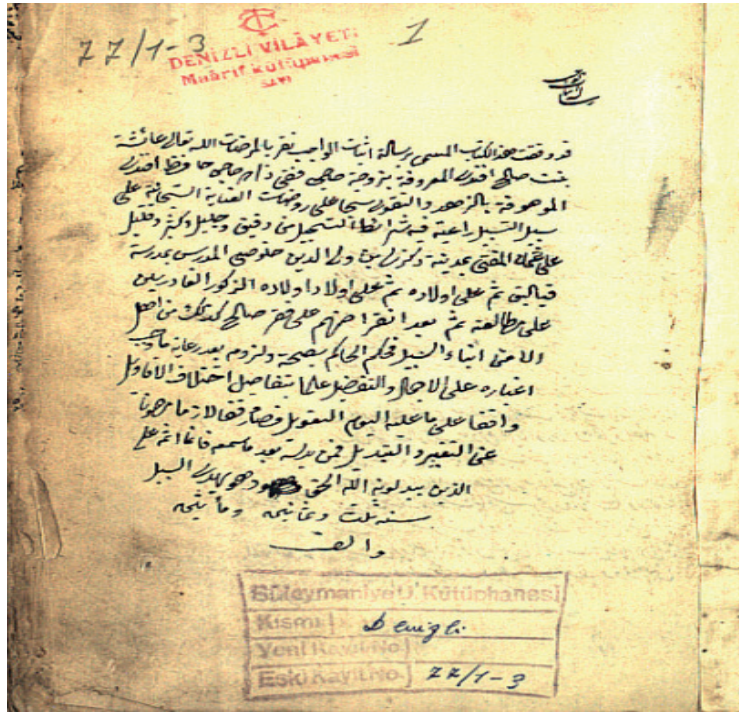 77/1-3
1
DENİZLİ VİLÂYETİ
Maârif Kütüphanesi
قد وقفت هذا الكتاب المسمى رسالة اثبات الواجب تقربا لمرضات الله تعالى عائشة
بنت صالح افندى المعروفة بزوجة حاجى حاجى حافظ افندى
الموصوفة بالزهد والتقوى على
سبيل التسبيل راعية فيه شرائط التسجيل من دقيق وجليل وكثير وقليل
على المفتى بمدينة ولى الدين خلوصى المدرس بمدرسة
ثم على اولاده ثم على اولاد اولاده الذكور القادرين
على مطالعته ثم بعد انقراضهم على فقير صالح كذلك من اهل
ابناء السبيل فحكم الحاكم بصحته ولزومه بعد رعاية ما وجب
اعتباره على الاجمال والتفصيل عالما بتفاصيل اختلاف الاقاويل
واقفا على ما عليه اليوم التعويل فصار وقفا لازما مرهونا
عن التغيير والتبديل فمن بدله بعد ما سمعه فانما اثمه على
الذين يبدلونه الله الحق وهو يهدى السبيل
سنه ثلث وثمانين ومأتين
والف
Süleymaniye U. Kütüphanesi
Kısmı Denizli
Yeni Kayıt No.
Eski Kayıt No. 77/1-3